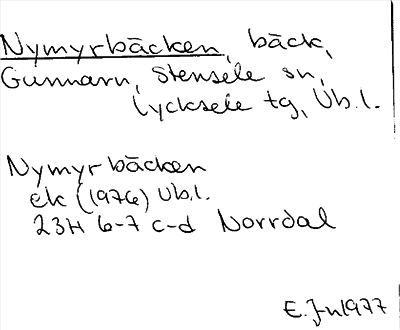 Nymyrbäcken, bäck,
Gunnarn, Stensele sn,
Lycksele tg, Vb.l.
Nymyrbäcken
ek (1976) Vb.l.
23H 6-7 c-d Norrdal
E. J-n 1977